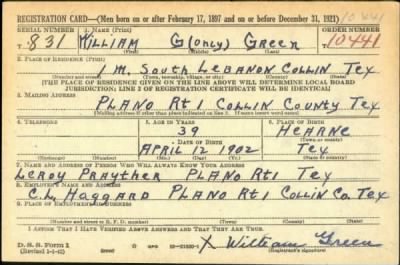 REGISTRATION CARD—(Men born on or after February 17, 1897 and on or before December 31, 1921) 10441
SERIAL NUMBER 1. NAME (Print) ORDER NUMBER
T 831 William G(only) Green 10441
2. PLACE OF RESIDENCE (Print)
1 M. South Lebanon Collin Tex
(Number and street) (Town, township, village, or city) (County) (State)
[THE PLACE OF RESIDENCE GIVEN ON THE LINE ABOVE WILL DETERMINE LOCAL BOARD
JURISDICTION; LINE 2 OF REGISTRATION CERTIFICATE WILL BE IDENTICAL]
3. MAILING ADDRESS
PLANO Rt 1 Collin County Tex
[Mailing address if other than place indicated on line 2. If same insert word same]
4. TELEPHONE 5. AGE IN YEARS 6. PLACE OF BIRTH
39 HEARNE
DATE OF BIRTH (Town or county)
APRIL 12 1902 Tex
(Exchange) (Number) (Mo.) (Day) (Yr.) (State or country)
7. NAME AND ADDRESS OF PERSON WHO WILL ALWAYS KNOW YOUR ADDRESS
Leroy Prayther PLANO Rt 1 Tex
8. EMPLOYER'S NAME AND ADDRESS
C.L. Haggard PLANO Rt 1 Collin Co. Tex
9. PLACE OF EMPLOYMENT OR BUSINESS
(Number and street or R. F. D. number) (Town) (County) (State)
I AFFIRM THAT I HAVE VERIFIED ABOVE ANSWERS AND THAT THEY ARE TRUE.
D. S. S. Form 1
(Revised 1-1-42) X William Green
(Registrant's signature)